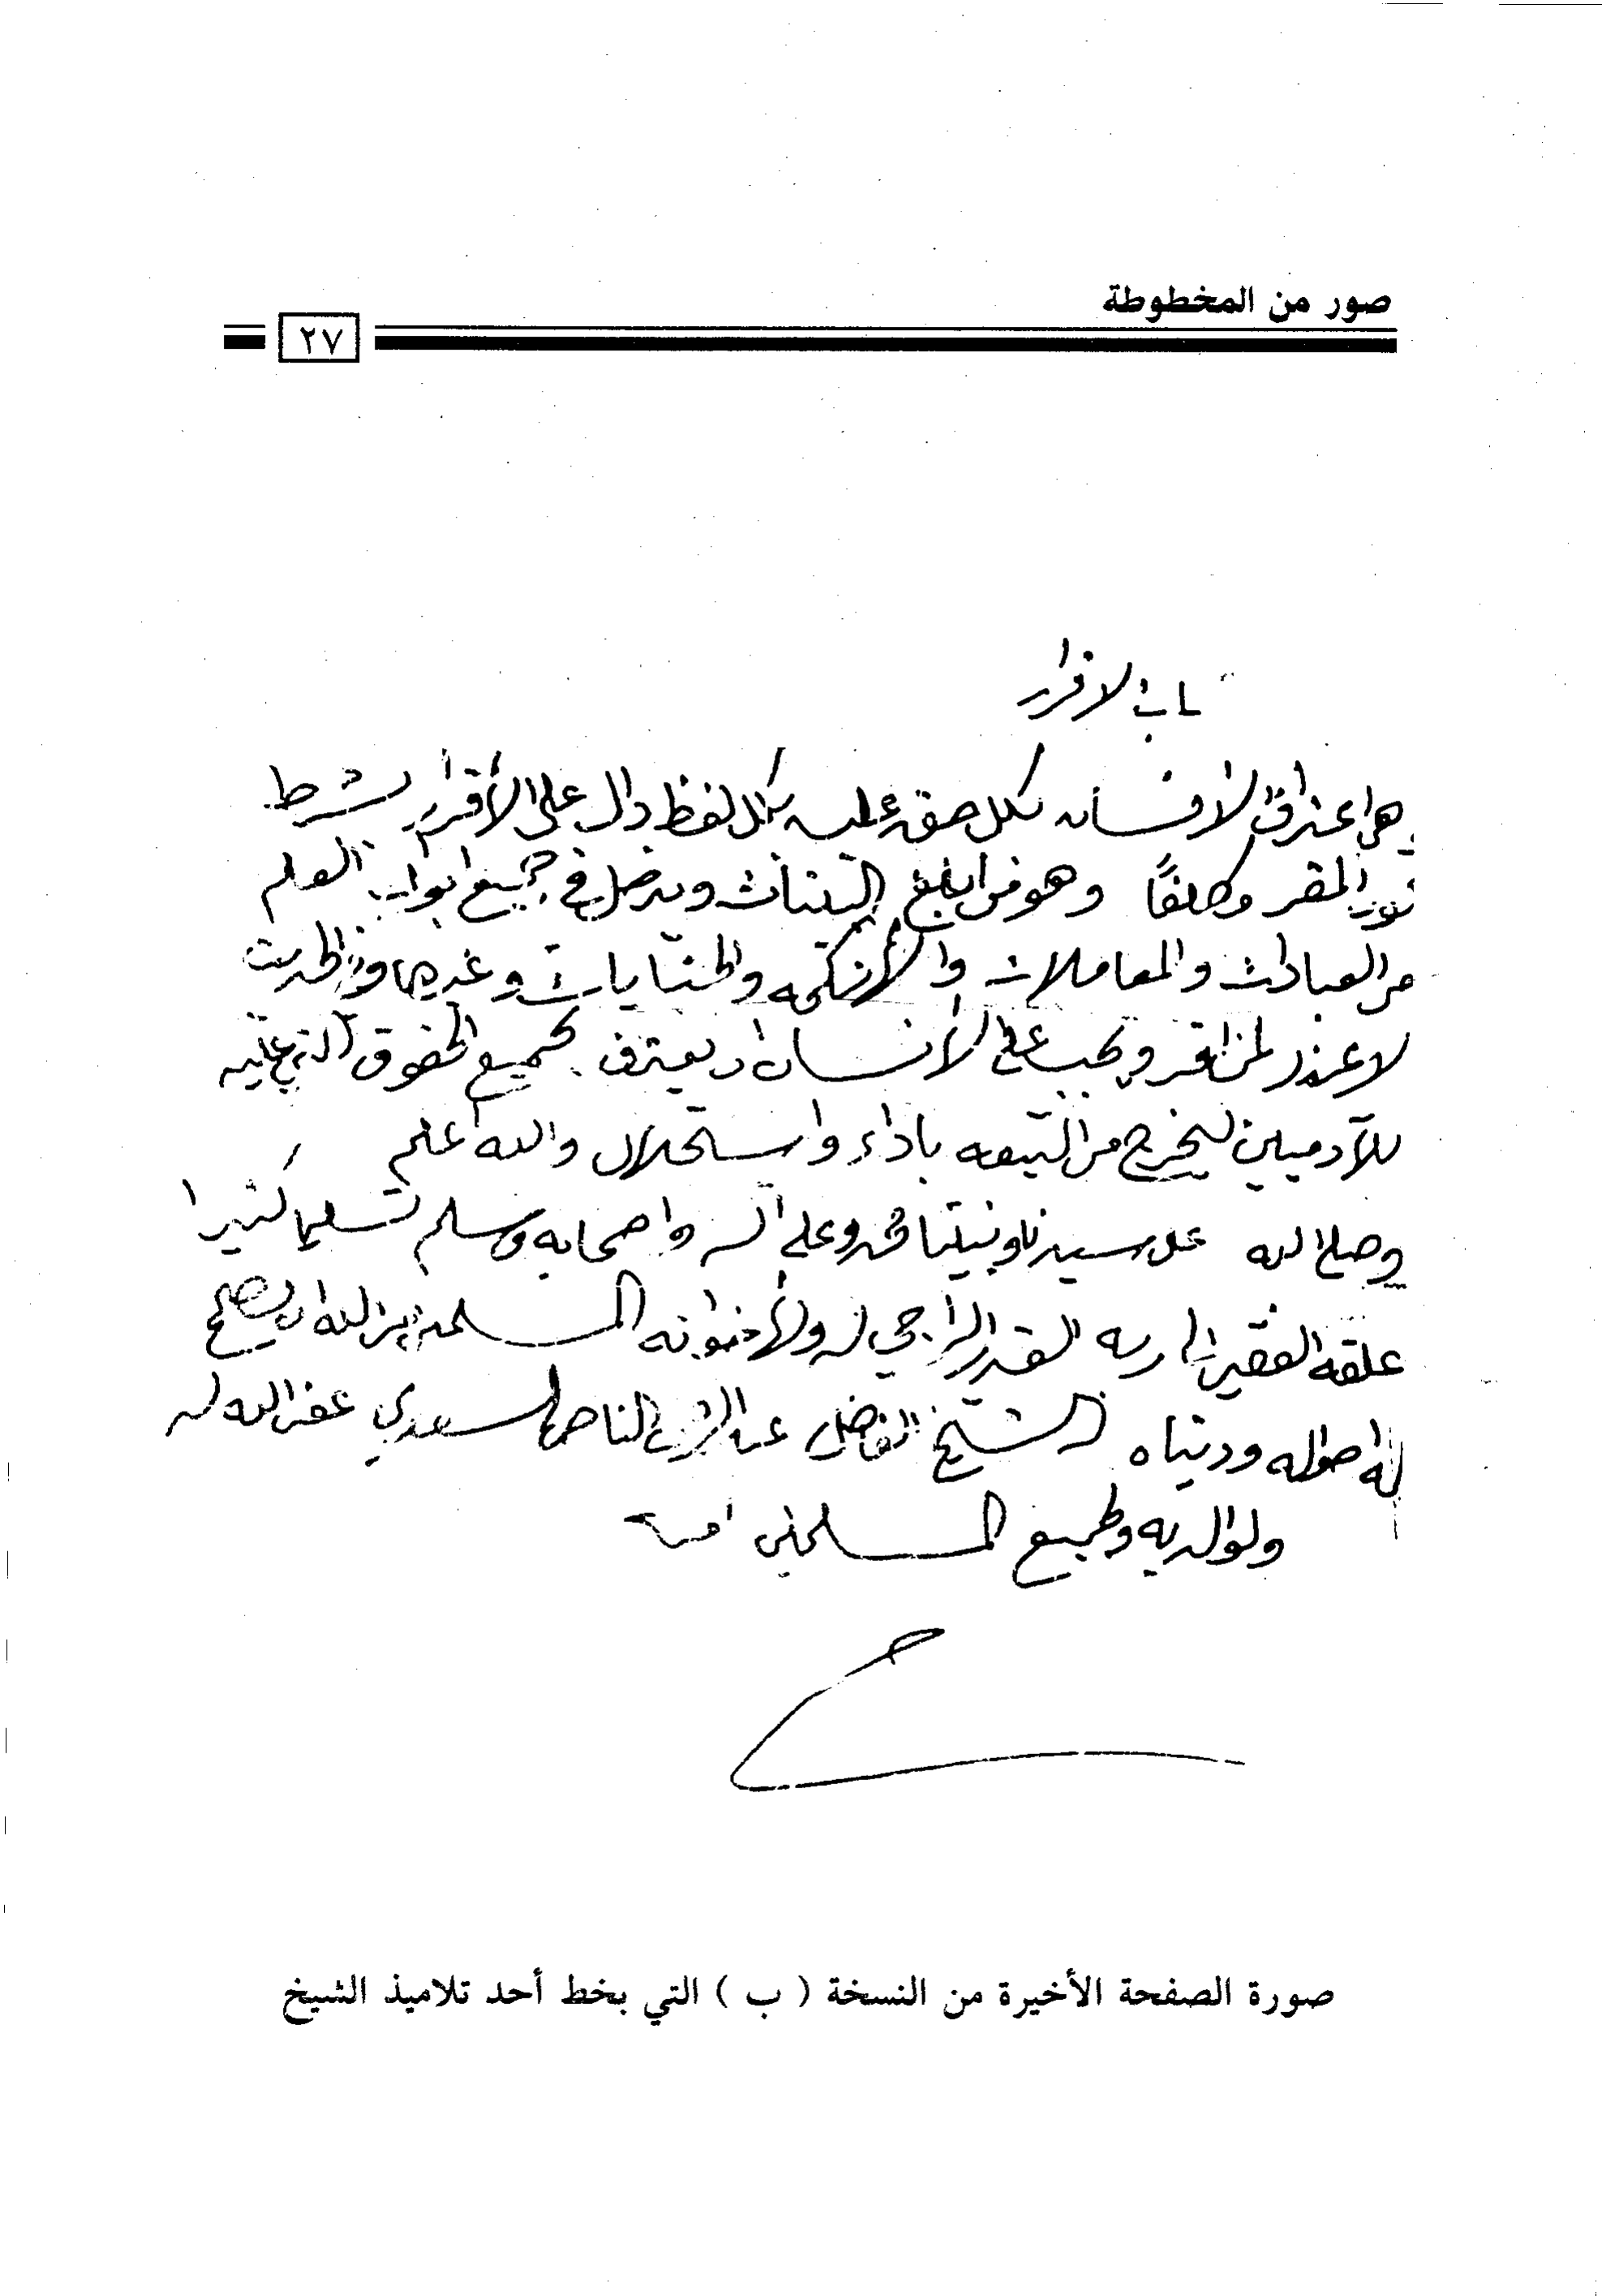 صور من المخطوطة
٢٧
باب الاقرار
وهو اعتراف الانسان بكل حق عليه بكل لفظ دال على الأقرار بشرط
كون المقر مكلفًا وهو من ابلغ البينات ويدخل في جميع ابواب العلم
من العبادات والمعاملات والأنكحه والجنايات وغيرها وفي الحديث
لا عذر لمن اقر ويجب على الأنسان ان يعترف بجميع الحقوق التي عليه
للآدميين ليخرج من التبعه باداء واستحلال والله اعلم
وصلى الله على سيدنا ونبينا محمد وعلى اله واصحابه وسلم تسليما كثيرا
علقه الفقير الى ربه القدير الراجي له ولأخوانه المسلمين من الله ان يصلح
له احواله ودنياه الشيخ الفاضل عبد الرحمن الناصر السعدي غفر الله له
ولوالديه ولجميع المسلمين امين
صورة الصفحة الأخيرة من النسخة ( ب ) التي بخط أحد تلاميذ الشيخ